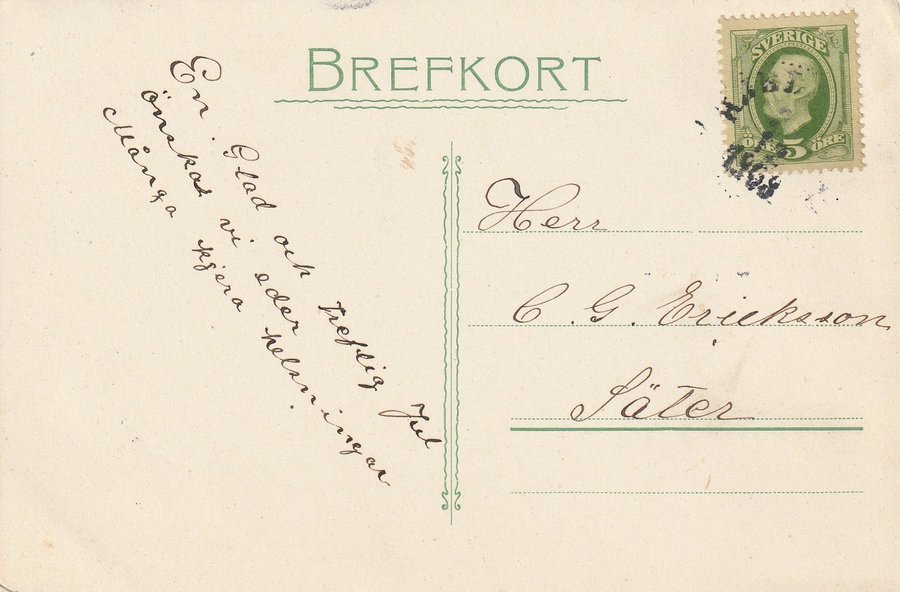 BREFKORT
SVERIGE
5 ÖRE
1908
En Glad och treflig Jul
önskas vi eder.
Många kjera helsningar
Herr
C. G. Ericksson
Säter